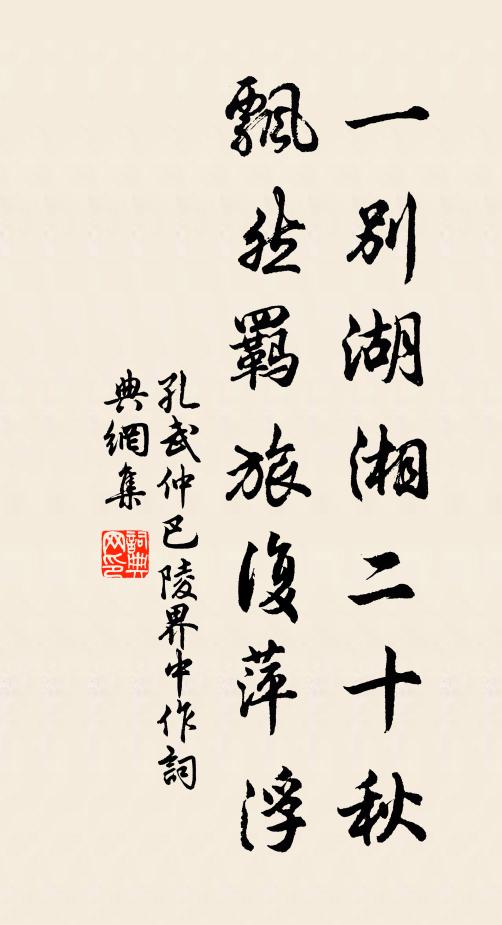 一別湖湘二十秋
飄然羈旅復萍浮
孔武仲巴陵界中作詞
典網集
詞典
网印